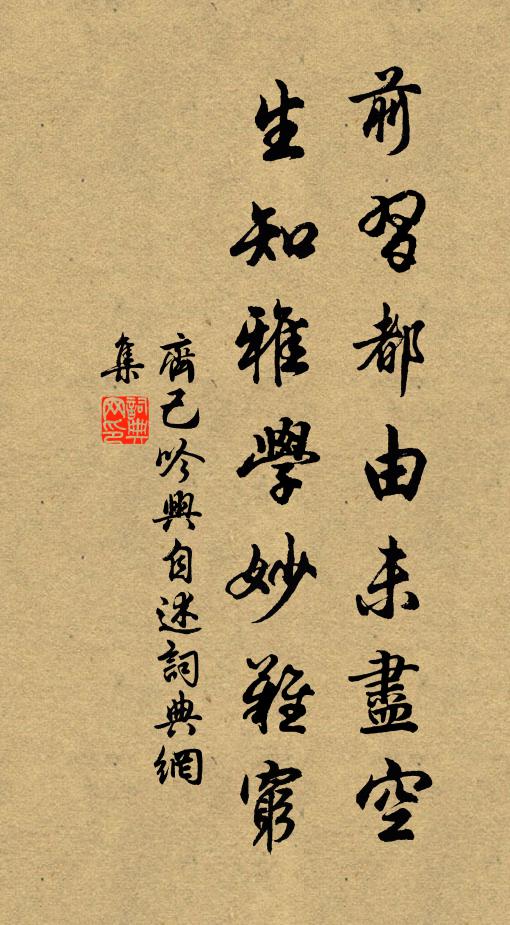 前習都由未盡空
生知雅學妙難窮
齊己吟興自述詞典網
集
詞典網印